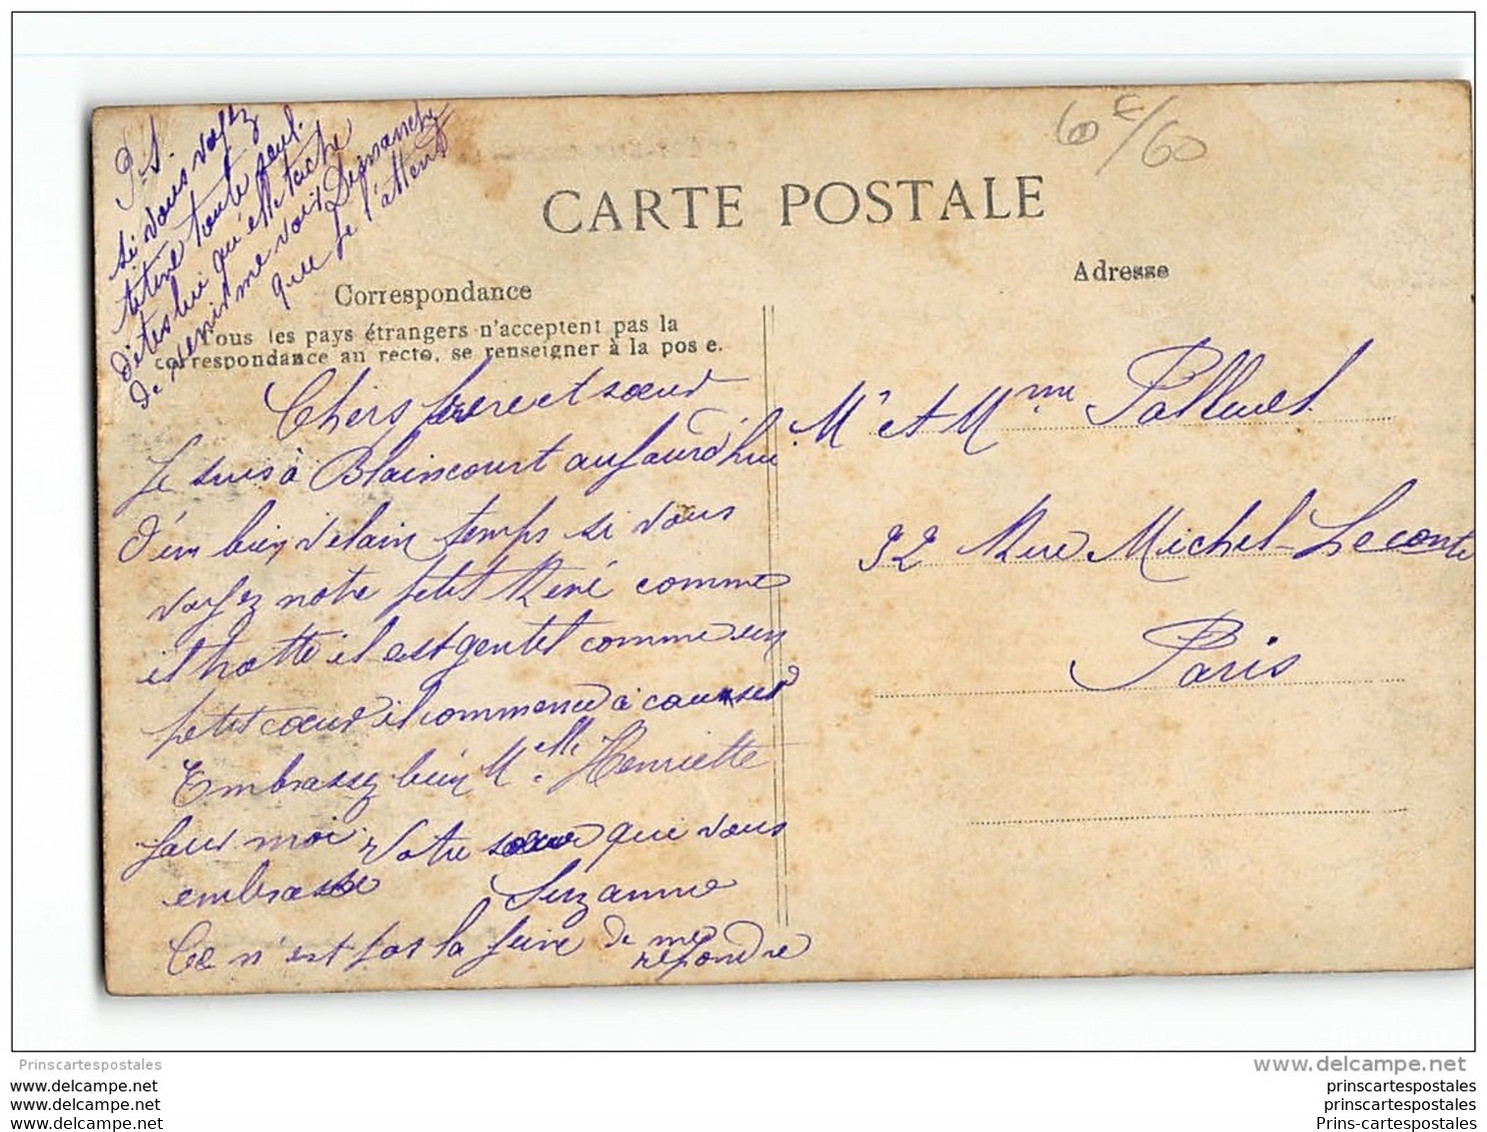 P.S.
si vous voyez
titine toute seul.
dites lui qu'elle tache
de venir me voir Dimanche
que je l'attend
60 €/60
CARTE POSTALE
Correspondance
Tous les pays étrangers n'acceptent pas la
correspondance au recto, se renseigner à la pos e.
Adresse
Chers frere et sœur
Je suis à Blaincourt aujourd'hui
d'un bien vilain temps si vous
voyez notre petit René comme
il trotte il est gentil comme un
petit cœur il commence à causser
Embrassez bien Melle Henriette
pour moi Votre sœur que vous
embrasse Suzanne
Ce n'est pas la peine de me
repondre
Mr et Mme Palluel
92 Rue Michel-Leconte
Paris
Prinscartespostales
www.delcampe.net
www.delcampe.net
www.delcampe.net
www.delcampe.net
prinscartespostales
prinscartespostales
Prins-cartespostales